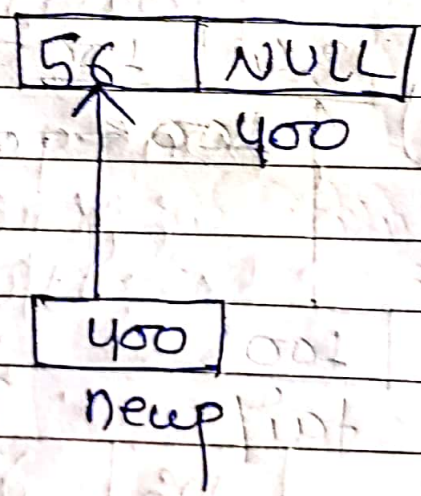 56 NULL
400
400
newp